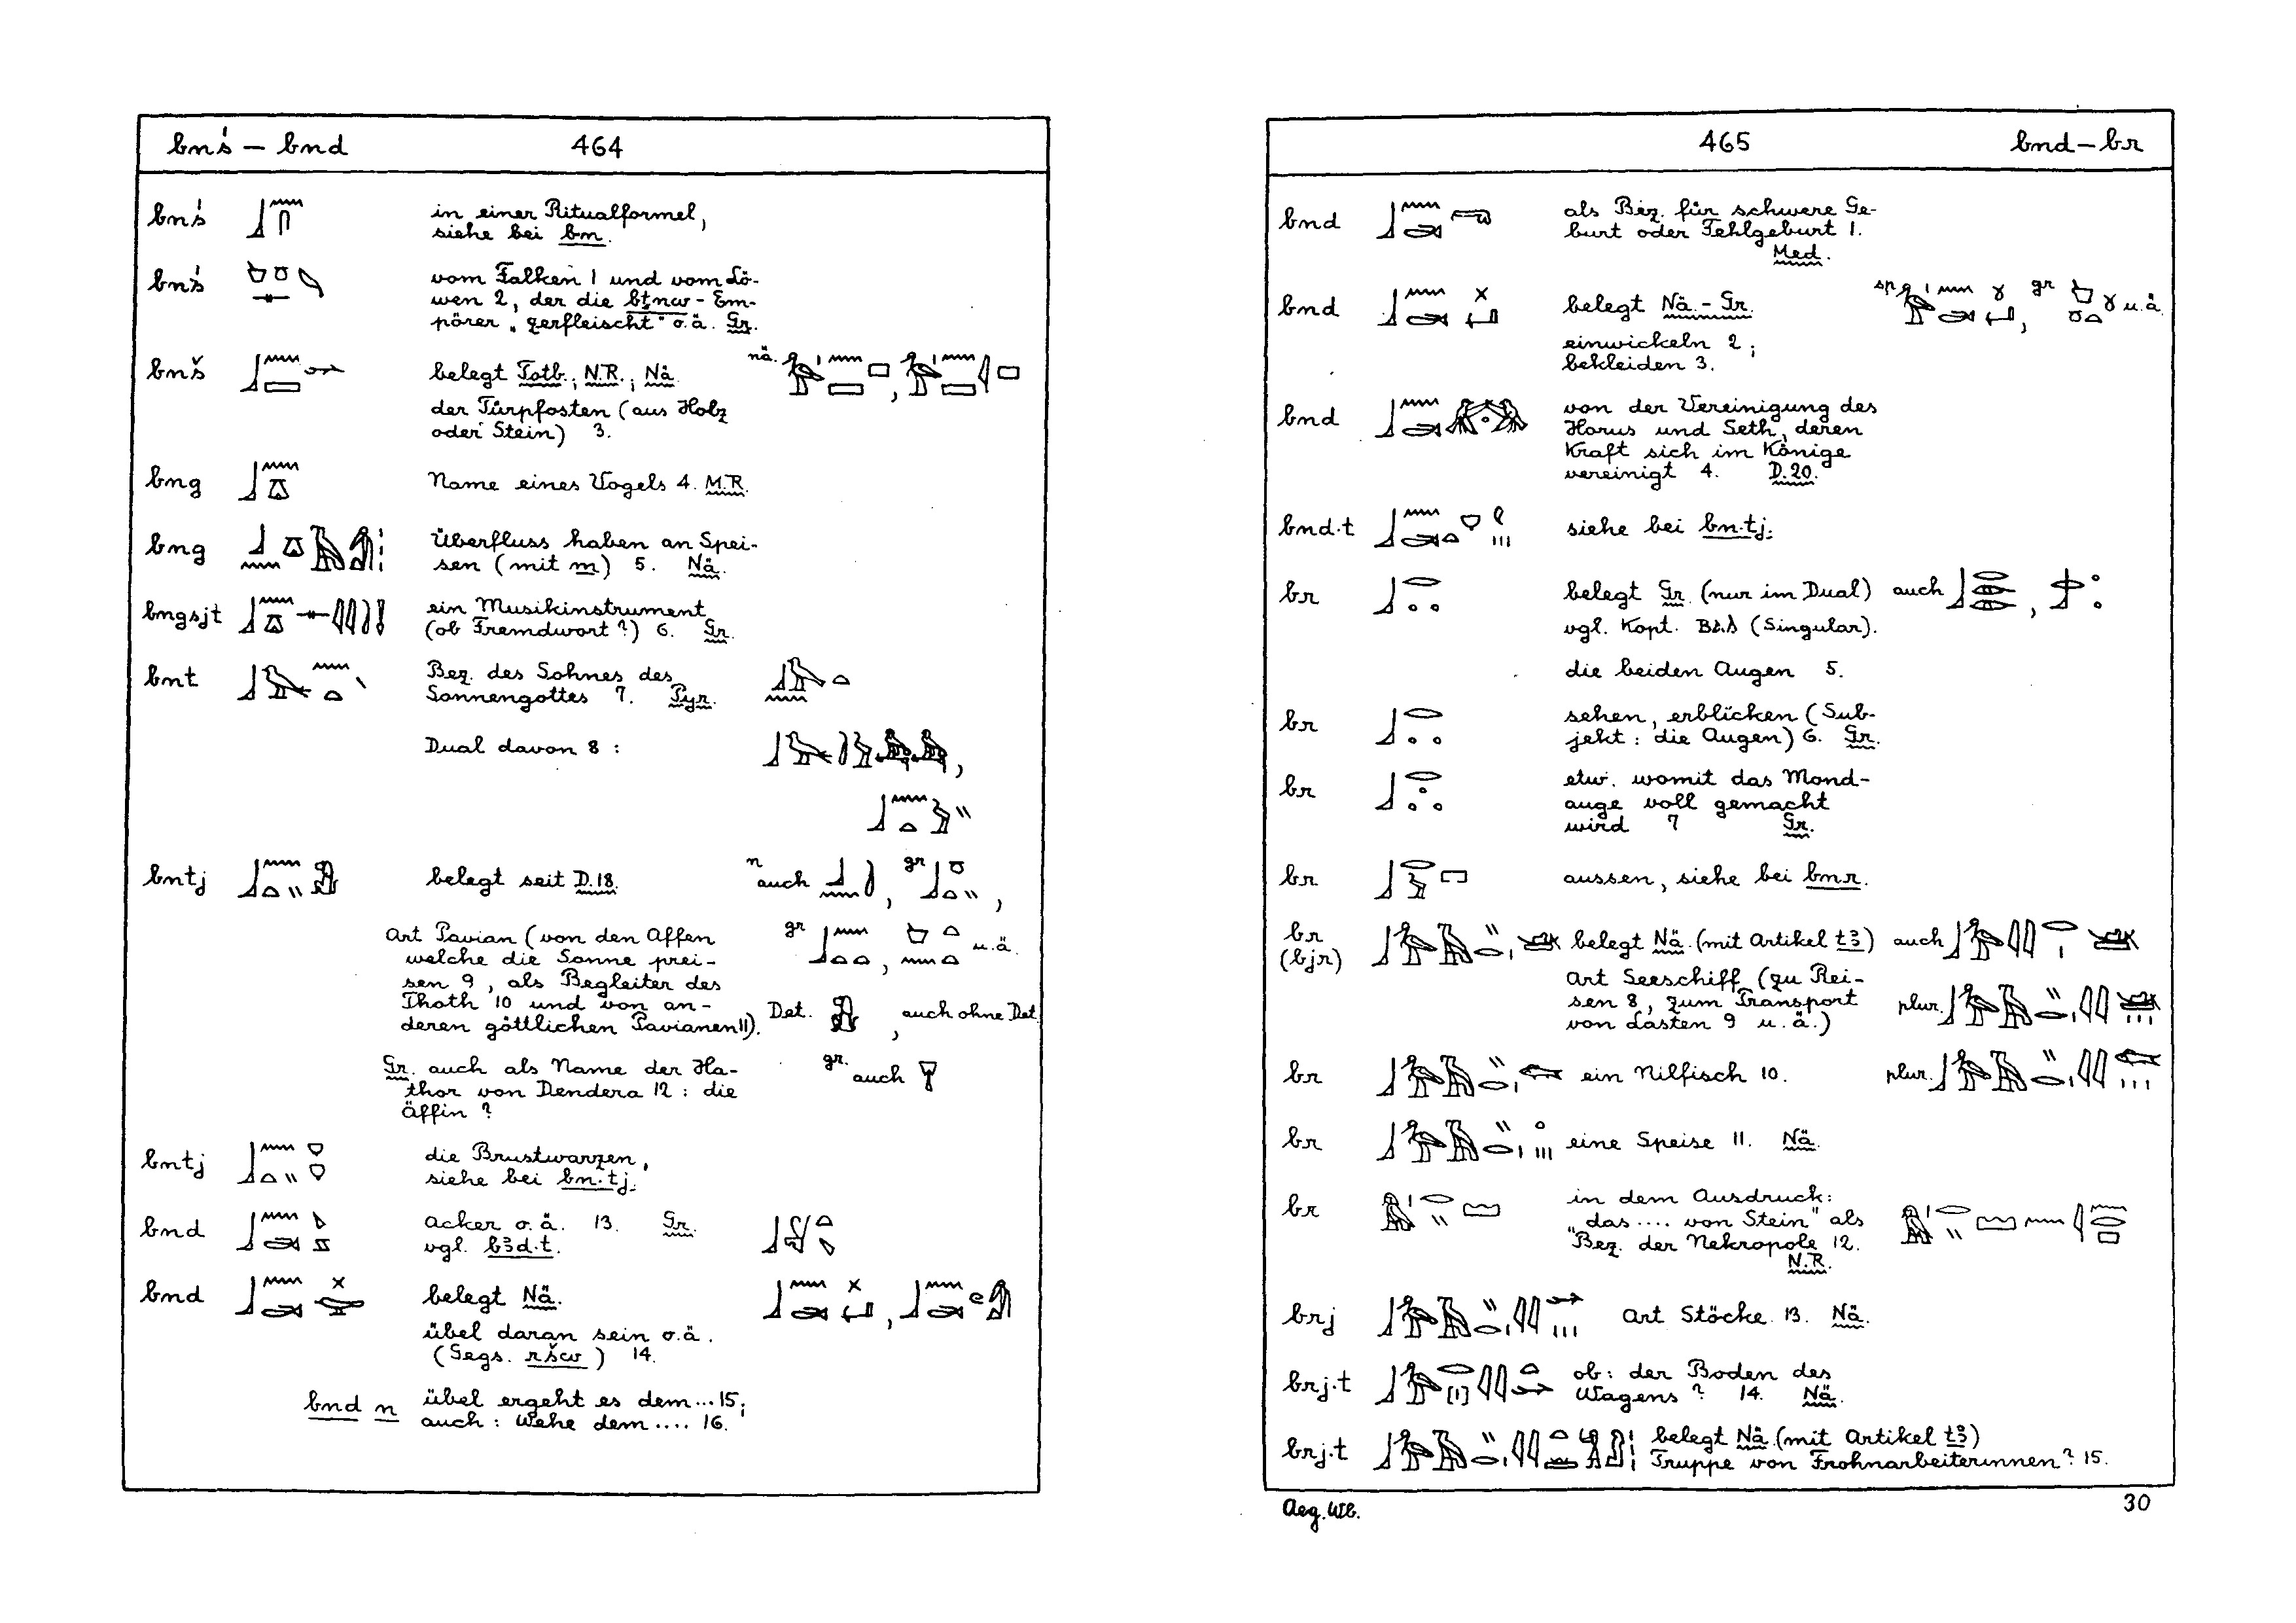 bnś – bnd 464
bnś in einer Ritualformel,
siehe bei bm.
bnś vom Falken 1 und vom Lö-
wen 2, der die bṯnw - Em-
pörer „zerfleischt" o.ä. Gr.
bnš belegt Totb.; N.R.; Nä. nä.
der Türpfosten (aus Holz
oder Stein) 3.
bng Name eines Vogels 4. M.R.
bng Überfluss haben an Spei-
sen (mit m) 5. Nä.
bngsjt ein Musikinstrument
(ob Fremdwort?) 6. Gr.
bnt Bez. des Sohnes des
Sonnengottes 7. Pyr.
Dual davon 8 :
bntj belegt seit D.18. n auch , gr ,
Art Pavian (von den Affen gr , u.ä.
welche die Sonne prei-
sen 9, als Begleiter des
Thoth 10 und von an-
deren göttlichen Pavianen 11). Det. , auch ohne Det.
Gr. auch als Name der Ha- gr. auch
thor von Dendera 12 : die
Äffin ?
bntj die Brustwarzen,
siehe bei bn.tj.
bnd Acker o.ä. 13. Gr.
vgl. bꜣd.t.
bnd belegt Nä. ,
übel daran sein o.ä.
(Gegs. ršw) 14.
bnd n übel ergeht es dem...15;
auch : Wehe dem .... 16.
465 bnd – br
bnd als Bez. für schwere Ge-
burt oder Fehlgeburt 1.
Med.
bnd belegt Nä. – Gr. sp. , gr u.ä.
einwickeln 2 ;
bekleiden 3.
bnd von der Vereinigung des
Horus und Seth, deren
Kraft sich im Könige
vereinigt 4. D.20.
bnd.t siehe bei bn.tj.
br belegt Gr. (nur im Dual) auch ,
vgl. Kopt. ⲂⲀⲖ (Singular).
die beiden Augen 5.
br sehen, erblicken (Sub-
jekt : die Augen) 6. Gr.
br etw. womit das Mond-
auge voll gemacht
wird 7 Gr.
br aussen, siehe bei bnr.
br belegt Nä. (mit Artikel tꜣ) auch
(bjr) Art Seeschiff (zu Rei-
sen 8, zum Transport plur.
von Lasten 9 u.ä.)
br ein Nilfisch 10. plur.
br eine Speise 11. Nä.
br in dem Ausdruck:
„das .... von Stein" als
Bez. der Nekropole 12.
N.R.
brj Art Stöcke 13. Nä.
brj.t ob: der Boden des
Wagens ? 14. Nä.
brj.t belegt Nä. (mit Artikel tꜣ)
Truppe von Frohnarbeiterinnen ? 15.
Aeg. Wb. 30